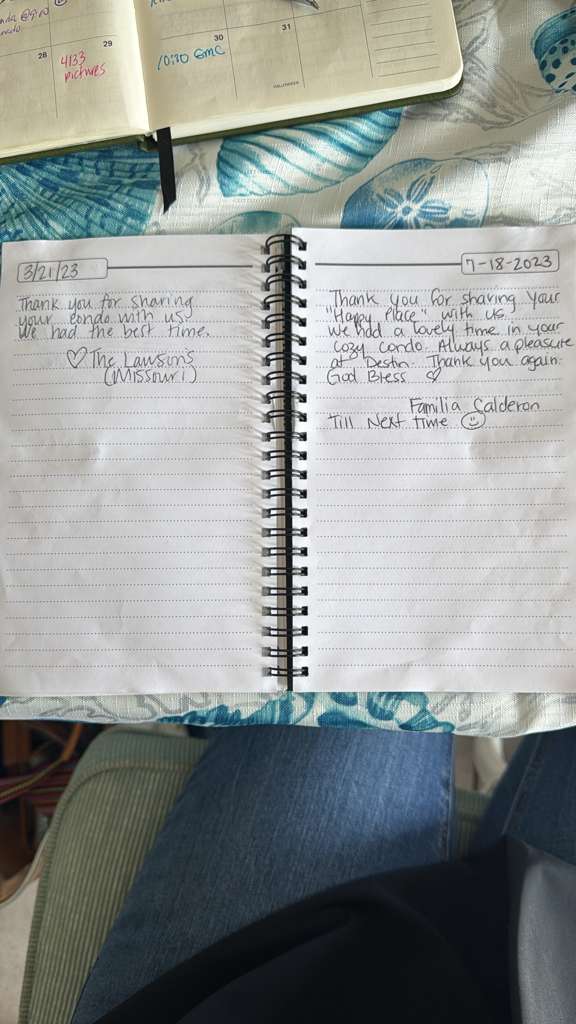 28
29
4133
pictures
30
10:30 GMC
31
3/21/23
Thank you for sharing
your condo with us.
We had the best time.
♡ The Lawson's
(Missouri)
7-18-2023
Thank you for sharing your
"Happy Place" with us.
We had a lovely time in your
cozy condo. Always a pleasure
at Destin. Thank you again.
God Bless ♡
Familia Calderon
Till Next time ☺